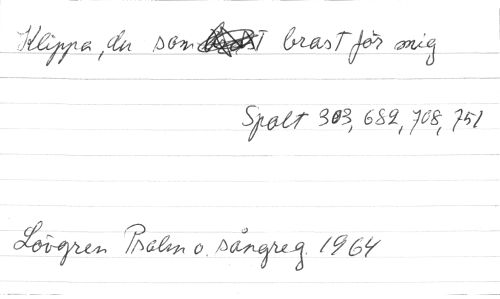 Klippa, du som brast för mig
Spalt 303, 682, 708, 751
Lövgren Psalm o. sångreg. 1964